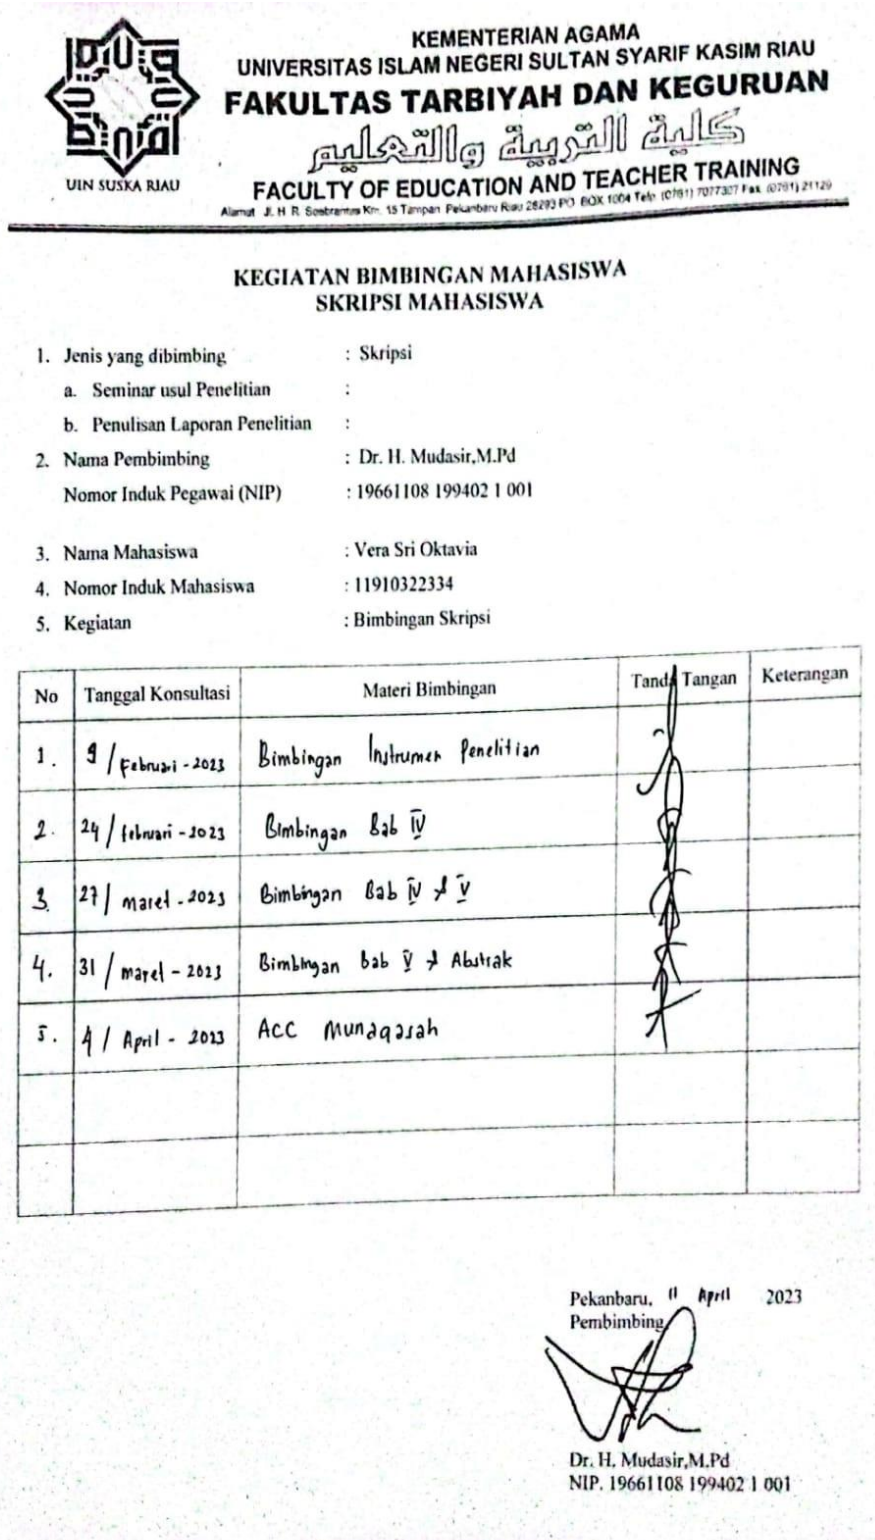 UIN SUSKA RIAU
KEMENTERIAN AGAMA
UNIVERSITAS ISLAM NEGERI SULTAN SYARIF KASIM RIAU
FAKULTAS TARBIYAH DAN KEGURUAN
كلية التربية والتعليم
FACULTY OF EDUCATION AND TEACHER TRAINING
Alamat Jl. H. R. Soebrantas Km. 15 Tampan Pekanbaru Riau 28293 PO. BOX 1004 Telp. (0761) 7077307 Fax. (0761) 21129
KEGIATAN BIMBINGAN MAHASISWA
SKRIPSI MAHASISWA
1. Jenis yang dibimbing : Skripsi
a. Seminar usul Penelitian :
b. Penulisan Laporan Penelitian :
2. Nama Pembimbing : Dr. H. Mudasir,M.Pd
Nomor Induk Pegawai (NIP) : 19661108 199402 1 001
3. Nama Mahasiswa : Vera Sri Oktavia
4. Nomor Induk Mahasiswa : 11910322334
5. Kegiatan : Bimbingan Skripsi
No Tanggal Konsultasi Materi Bimbingan Tanda Tangan Keterangan
1. 9 / Februari - 2023 Bimbingan Instrumen Penelitian
2. 24 / februari - 2023 Bimbingan Bab IV
3. 27 / maret - 2023 Bimbingan Bab IV & V
4. 31 / maret - 2023 Bimbingan bab V & Abstrak
5. 4 / April - 2023 ACC Munaqasah
Pekanbaru, 11 April 2023
Pembimbing
Dr. H. Mudasir,M.Pd
NIP. 19661108 199402 1 001